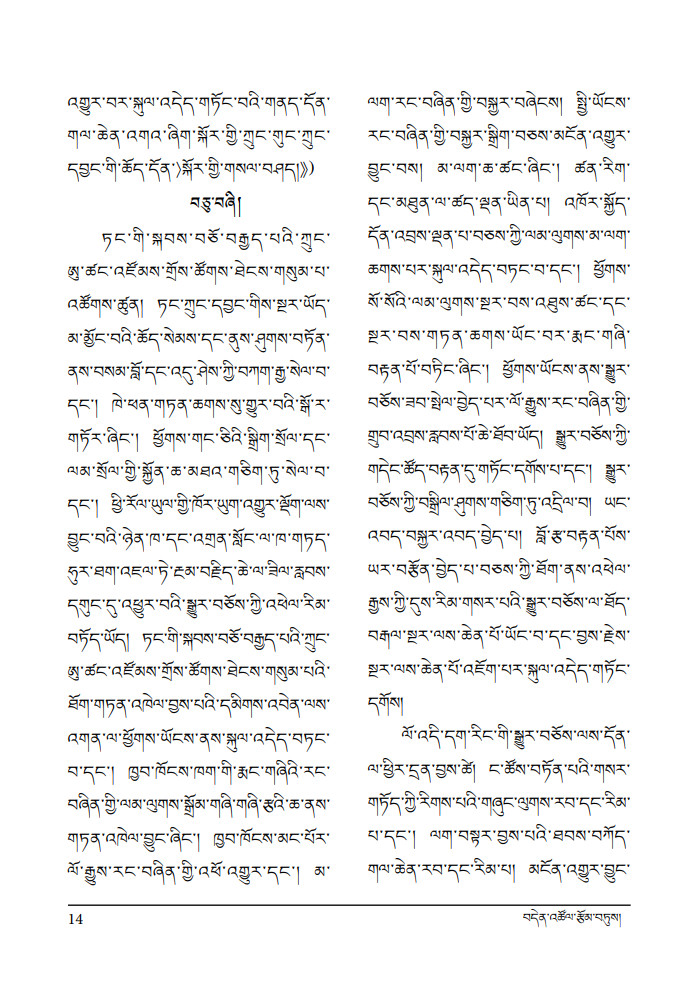 འགྱུར་བར་སྐུལ་འདེད་གཏོང་བའི་གནད་དོན་
གལ་ཆེན་འགའ་ཞིག་སྐོར་གྱི་ཀྲུང་གུང་ཀྲུང་
དབྱང་གི་ཆོད་དོན་〉སྐོར་གྱི་གསལ་བཤད།》)
བཅུ་བཞི།
ཏང་གི་སྐབས་བཅོ་བརྒྱད་པའི་ཀྲུང་
ཨུ་ཚང་འཛོམས་གྲོས་ཚོགས་ཐེངས་གསུམ་པ་
འཚོགས་ཚུན། ཏང་ཀྲུང་དབྱང་གིས་སྔར་ཡོད་
མ་མྱོང་བའི་ཆོད་སེམས་དང་ནུས་ཤུགས་བཏོན་
ནས་བསམ་བློ་དང་འདུ་ཤེས་ཀྱི་བཀག་རྒྱ་སེལ་བ་
དང་། ཁེ་ཕན་གཏན་ཆགས་སུ་གྱུར་བའི་སྒོ་ར་
གཏོར་ཞིང་། ཕྱོགས་གང་ཅིའི་སྒྲིག་སྲོལ་དང་
ལམ་སྲོལ་གྱི་སྐྱོན་ཆ་མཐའ་གཅིག་ཏུ་སེལ་བ་
དང་། ཕྱི་རོལ་ཡུལ་གྱི་ཁོར་ཡུག་འགྱུར་ལྡོག་ལས་
བྱུང་བའི་ཉེན་ཁ་དང་འགྲན་སློང་ལ་ཁ་གཏད་
ཧུར་ཐག་འཇལ་ཏེ་རྔམ་བརྗིད་ཆེ་ལ་ཟིལ་རླབས་
དགུང་དུ་འཕྱུར་བའི་སྒྱུར་བཅོས་ཀྱི་འཕེལ་རིམ་
བཏོད་ཡོད། ཏང་གི་སྐབས་བཅོ་བརྒྱད་པའི་ཀྲུང་
ཨུ་ཚང་འཛོམས་གྲོས་ཚོགས་ཐེངས་གསུམ་པའི་
ཐོག་གཏན་འཁེལ་བྱས་པའི་དམིགས་འབེན་ལས་
འགན་ལ་ཕྱོགས་ཡོངས་ནས་སྐུལ་འདེད་བཏང་
བ་དང་། ཁྱབ་ཁོངས་ཁག་གི་རྨང་གཞིའི་རང་
བཞིན་གྱི་ལམ་ལུགས་སྒྲོམ་གཞི་གཞི་རྩའི་ཆ་ནས་
གཏན་འཁེལ་བྱུང་ཞིང་། ཁྱབ་ཁོངས་མང་པོར་
ལོ་རྒྱུས་རང་བཞིན་གྱི་འཕོ་འགྱུར་དང་། མ་
ལག་རང་བཞིན་གྱི་བསྐྱར་བཞེངས། སྤྱི་ཡོངས་
རང་བཞིན་གྱི་བསྐྱར་སྒྲིག་བཅས་མངོན་འགྱུར་
བྱུང་བས། མ་ལག་ཆ་ཚང་ཞིང་། ཚན་རིག་
དང་མཐུན་ལ་ཚད་ལྡན་ཡིན་པ། འཁོར་སྐྱོད་
དོན་འབྲས་ལྡན་པ་བཅས་ཀྱི་ལམ་ལུགས་མ་ལག་
ཆགས་པར་སྐུལ་འདེད་བཏང་བ་དང་། ཕྱོགས་
སོ་སོའི་ལམ་ལུགས་སྔར་བས་འཐུས་ཚང་དང་
སྔར་བས་གཏན་ཆགས་ཡོང་བར་རྨང་གཞི་
བརྟན་པོ་བཏིང་ཞིང་། ཕྱོགས་ཡོངས་ནས་སྒྱུར་
བཅོས་ཟབ་སྤེལ་བྱེད་པར་ལོ་རྒྱུས་རང་བཞིན་གྱི་
གྲུབ་འབྲས་རླབས་པོ་ཆེ་ཐོབ་ཡོད། སྒྱུར་བཅོས་ཀྱི་
གདེང་ཚོད་བརྟན་དུ་གཏོང་དགོས་པ་དང་། སྒྱུར་
བཅོས་ཀྱི་བསྒྲིལ་ཤུགས་གཅིག་ཏུ་འདྲིལ་བ། ཡང་
འབད་བསྐྱར་འབད་བྱེད་པ། བློ་རྩ་བརྟན་པོས་
ཡར་བརྩོན་བྱེད་པ་བཅས་ཀྱི་ཐོག་ནས་འཕེལ་
རྒྱས་ཀྱི་དུས་རིམ་གསར་པའི་སྒྱུར་བཅོས་ལ་ཐོད་
བརྒལ་སྔར་ལས་ཆེན་པོ་ཡོང་བ་དང་བྱས་རྗེས་
སྔར་ལས་ཆེན་པོ་འཇོག་པར་སྐུལ་འདེད་གཏོང་
དགོས།
ལོ་འདི་དག་རིང་གི་སྒྱུར་བཅོས་ལས་དོན་
ལ་ཕྱིར་དྲན་བྱས་ཚེ། ང་ཚོས་བཏོན་པའི་གསར་
གཏོད་ཀྱི་རིགས་པའི་གཞུང་ལུགས་རབ་དང་རིམ་
པ་དང་། ལག་བསྟར་བྱས་པའི་ཐབས་བཀོད་
གལ་ཆེན་རབ་དང་རིམ་པ། མངོན་འགྱུར་བྱུང་
14
བདེན་འཚོལ་རྩོམ་བཏུས།